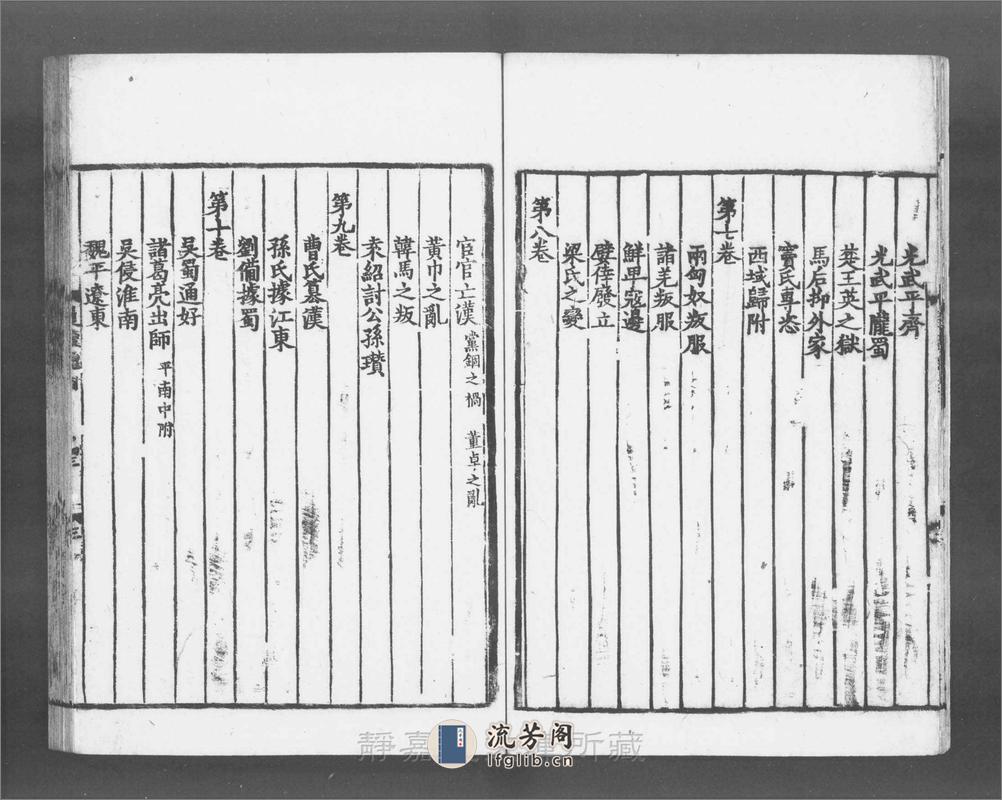 光武平齊
光武平隴蜀
楚王英之獄
馬后抑外家
竇氏專恣
西域歸附
第七卷
兩匈奴叛服
諸羌叛服
鮮卑寇邊
嬖倖廢立
梁氏之變
第八卷
宦官亡漢 黨錮之禍 董卓之亂
黃巾之亂
韓馬之叛
袁紹討公孫瓚
第九卷
曹氏篡漢
孫氏據江東
劉備據蜀
第十卷
吳蜀通好
諸葛亮出師 平南中附
吳侵淮南
魏平遼東
靜嘉 所藏
流芳阁
lfglib.cn